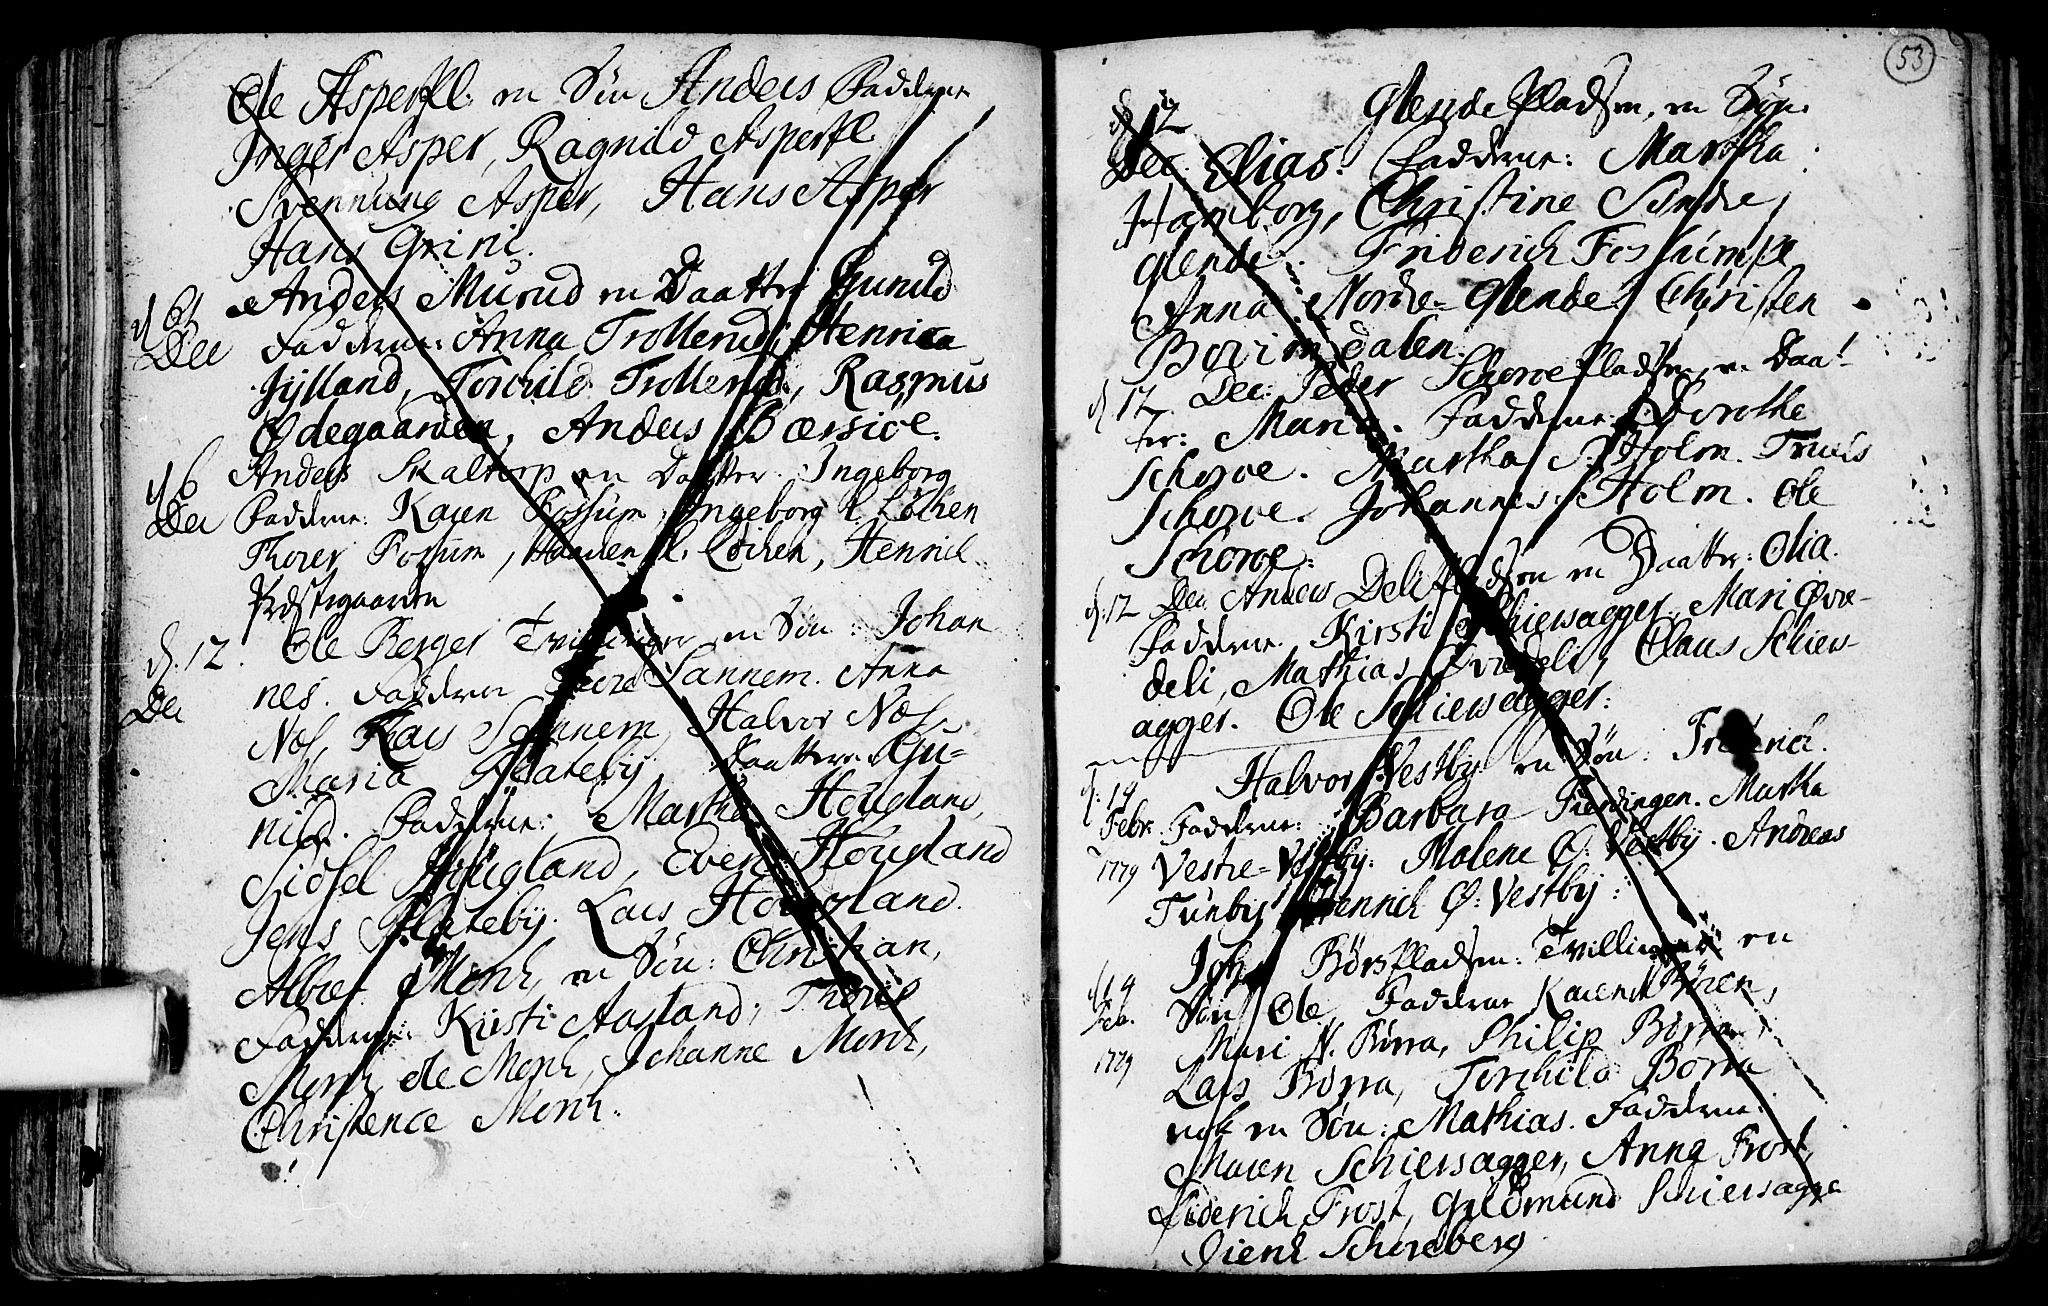 Ole Asperfl. en Søn Anders Fadderne
Inger Asper, Ragnild Asperfl.
Svennung Asper, Hans Asper
Hans Grini.
Anders Murud en Daatter Gunild
d. 6
Dec Fadderne: Anna Trollerud, Henrica
Jylland, Torchild Trollerud, Rasmus
Ødegaarden, Anders Bærsiøe.
d 6 Anders Skaltorp en Daatter Ingeborg
Dec Fadderne: Karen Fossum, Ingeborg l. Løchen
Thorer Fossum, l. Løchen, Henrich
Præstegaarden
d. 12. Ole Berger Tvillinger en Søn: Johan
Dec nes. Fadderne Sannem. Anna
Næs, Lars Sannem, Halvor Næs,
Maria Flateby. Daatteren Gu-
nild. Fadderne: Martha Hougland,
Sidsel Hougland, Even Hougland
Jens Flateby. Lars Hougland.
Albret Monk, en Søn: Christian,
Fadderne: Kirsti Aasland,
Monk, Ole Monk, Johanne Monk,
Christence Monk.
53
d. 12 Glende Pladsen, en Søn
Dec. Elias. Fadderne: Martha
Hamborg, Christine Søndre
Glende. Friderich Foskumpe
Anna Nordre-Glende. Christen
Borrindalen.
d. 12 Dec: Peder Schovoe Pladsen, en Daat
ter: Maria. Fadderne: Dorothe
Schovoe. Martha S. Holm. Truels
Schovoe. Johannes S. Holm. Ole
Schovoe.
d. 12 Dec Anders Deli Pladsen en Daatter: Olia.
Fadderne. Kirsti Schiersagger, Mari Øvre-
deli, Mathias Øvredeli, Claus Schiers-
agger. Ole Schiersagger.
d. 14 Halvor Vestby en Søn: Friderich.
Febr. Fadderne: Barbara Fierdingen. Martha
1779 Vestre-Vestby. Malene Ø. Vestby. Andreas
Tunby, Hennich Ø. Vestby.
d 14 Joh. Børs Pladsen: Tvillinger en
Feb. Søn Ole, Fadderne Karen Børen,
1779 Mari N. Børra, Philip Børra,
Lars Børra, Torchild Børra
nok en Søn: Mathias. Fadderne:
Maren Schiersagger, Anna Frost,
Friderich Frost, Guldmund Schiersagge
Schoreberg